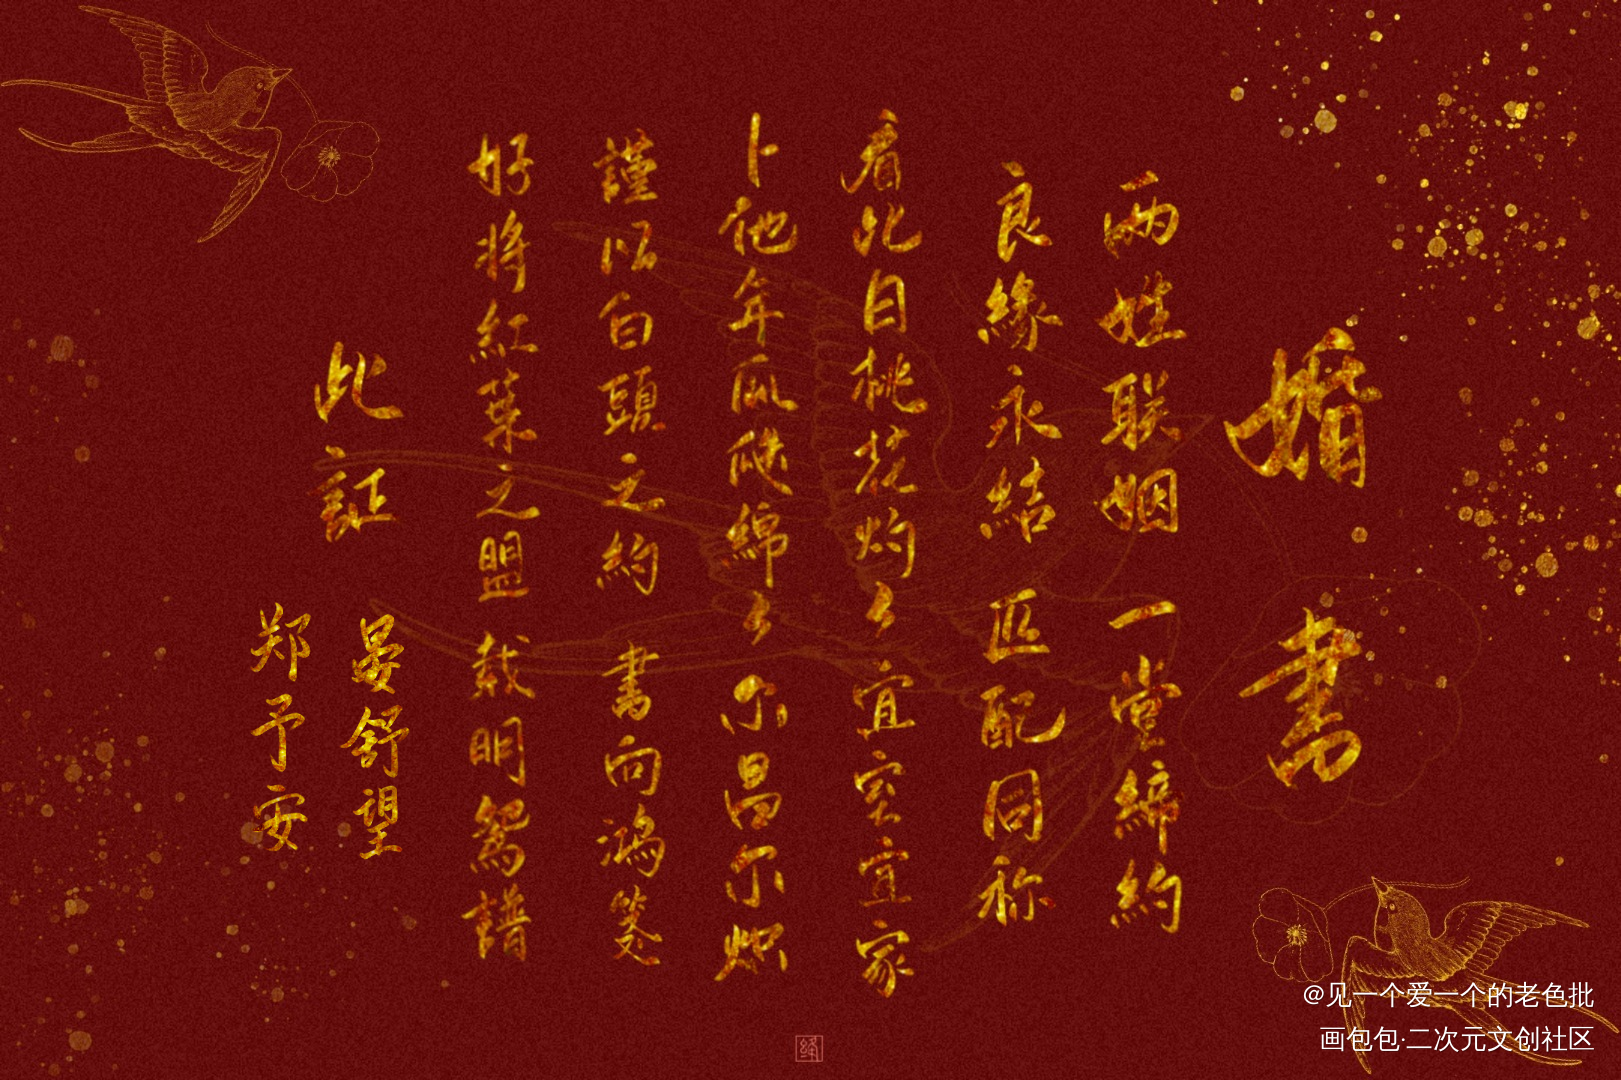 婚書
两姓联姻 一堂締約
良緣永結 匹配同称
看此日桃花灼灼 宜室宜家
卜他年瓜瓞綿綿 尔昌尔炽
謹以白頭之約 書向鴻箋
好将紅葉之盟 載明鴛譜
此証
晏舒望
郑予安
@见一个爱一个的老色批
画包包·二次元文创社区